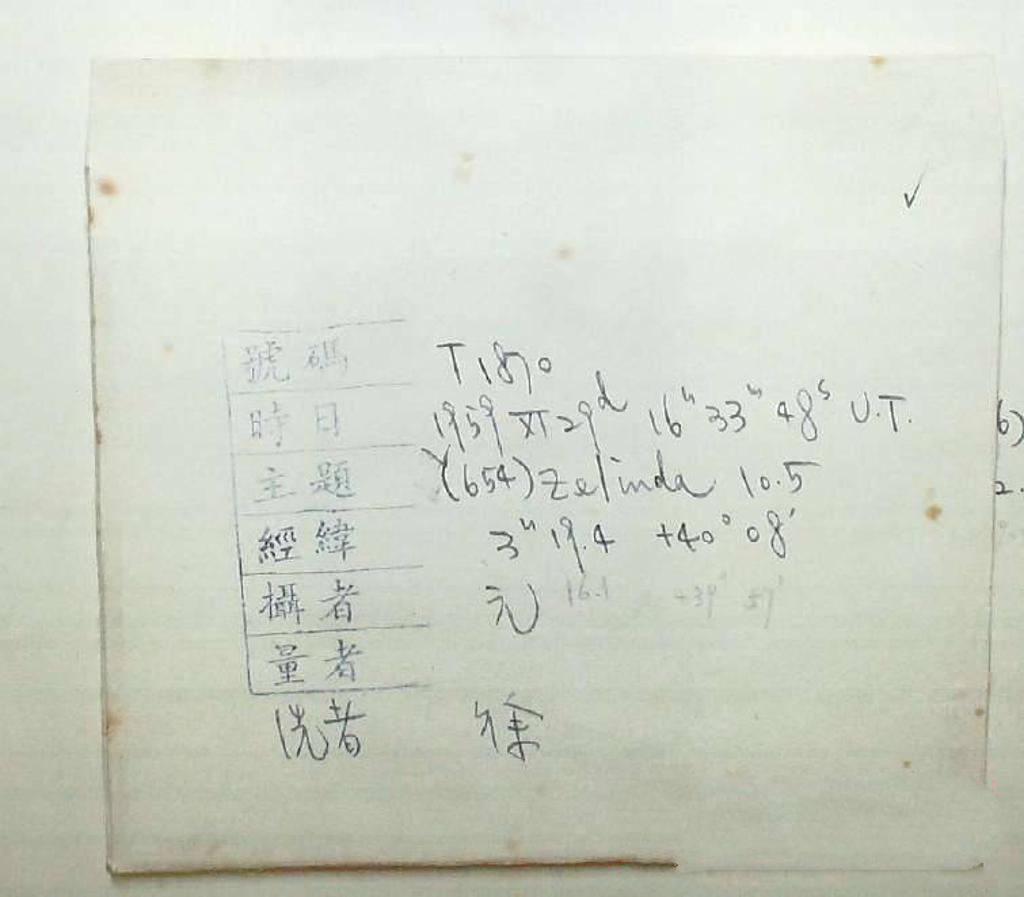 號碼 T1870
時日 1959 XI 29ᵈ 16ʰ 33ᵐ 48ˢ U.T.
主題 (654) Zelinda 10.5
經緯 3ʰ 19.4 +40° 08′
攝者 元 16.1 +39° 59′
量者
洗者 徐